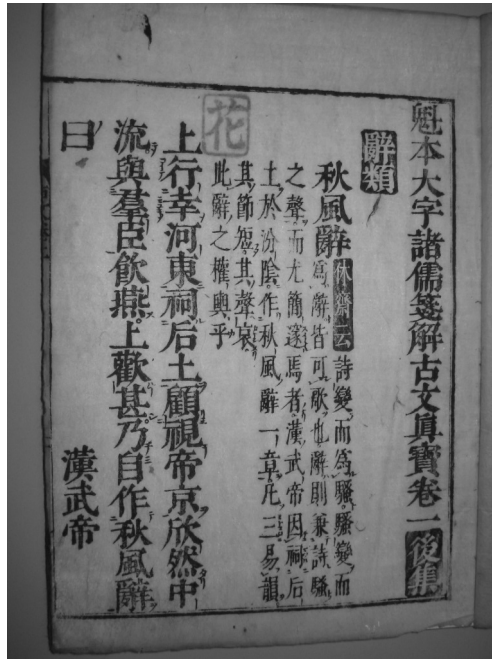 魁本大字諸儒箋解古文眞寶卷一後集
辭類
秋風辭 休齋云 詩變而爲騷騷變而
爲辭皆可歌也辭則兼詩騷
之聲而尤簡邃焉者漢武帝因祠后
土於汾陰作秋風辭一章凡三易韻
其節短其聲哀
此辭之權輿乎
漢武帝
上行幸河東祠后土顧視帝京欣然中
流與羣臣飮燕上歡甚乃自作秋風辭
曰
花